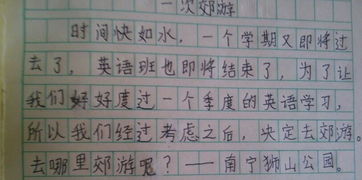 一次郊游
时间快如水，一个学期又即将过
去了，英语班也即将结束了，为了让
我们好好度过一个季度的英语学习，
所以我们经过考虑之后，决定去郊游。
去哪里郊游呢？——南宁狮山公园。